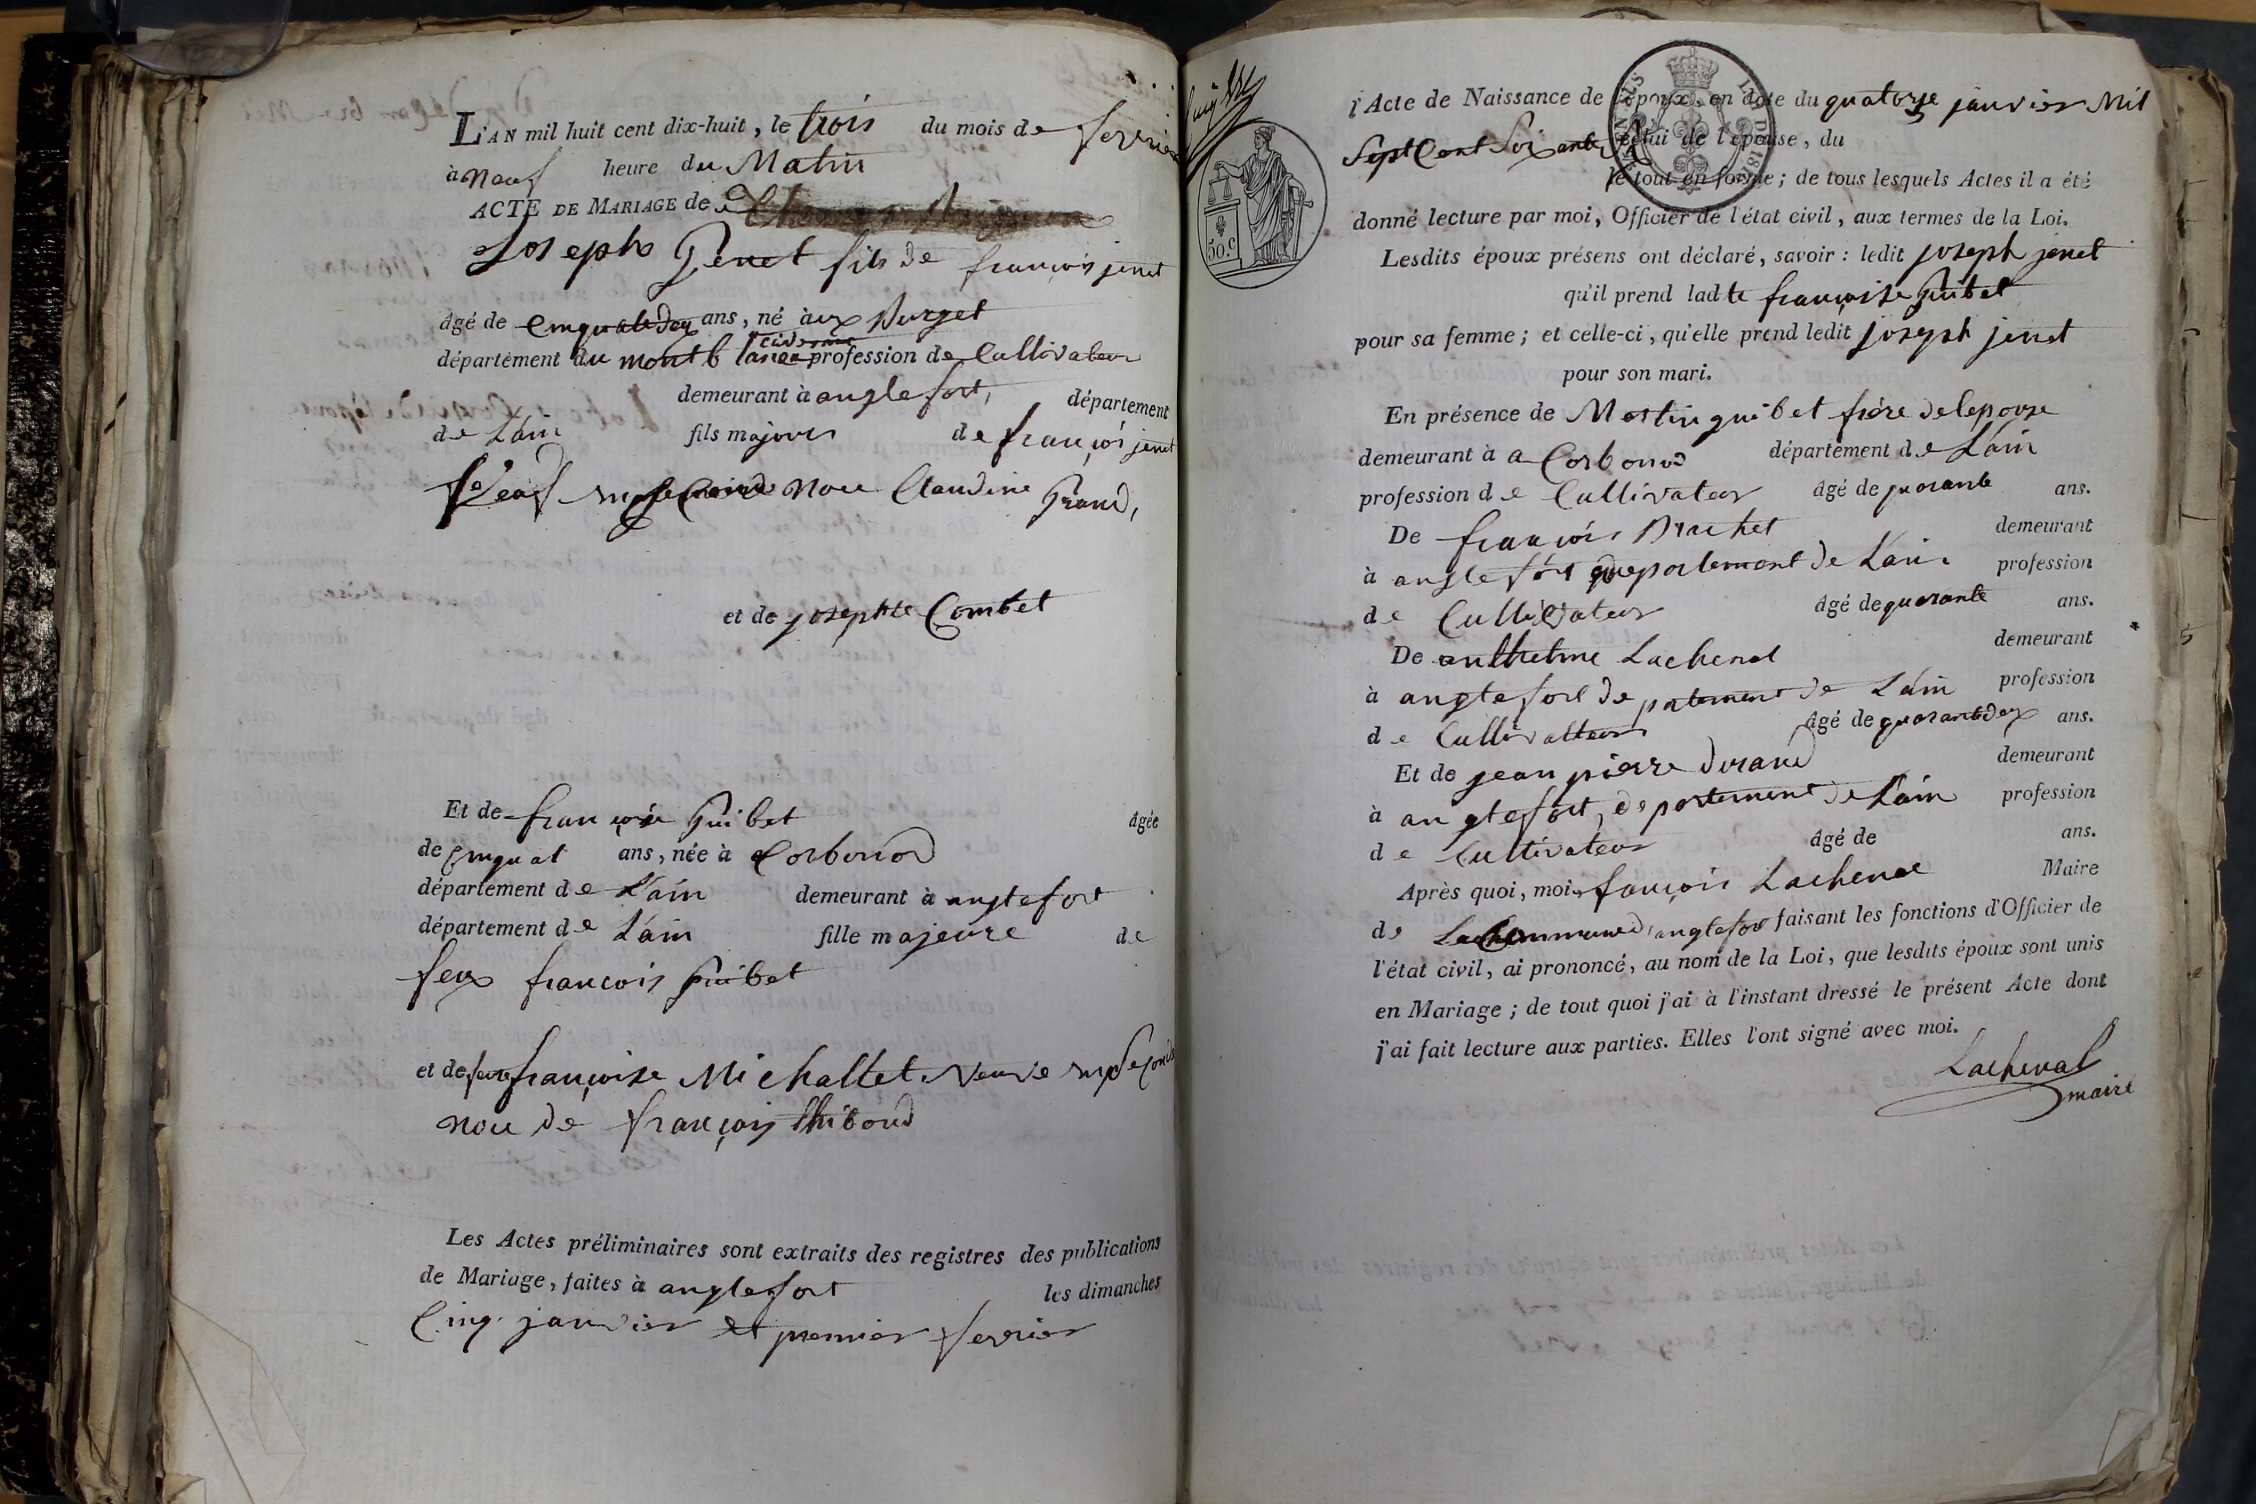 L'AN mil huit cent dix-huit, le trois du mois de fevrier
à neuf heure du Matin
ACTE DE MARIAGE de
Joseph Genet fils de françois jenet
âgé de cinquatedeux ans, né aux Burget
département du montblanc profession de Cultivateur
demeurant à anglefort, département
de L'ain fils majeur de françois jenet
veuf Claudine Grand,
et de josephte Combet
Et de françoise Guibet âgée
de cinquat ans, née à Corbonod
département de L'ain demeurant à anglefort
département de L'ain fille majeure de
feux françois Guibet
et de feue françoise Michallet veuve en seconde
noce de françois thiboud
Les Actes préliminaires sont extraits des registres des publications
de Mariage, faites à anglefort les dimanches
Cinq janvier et premier fevrier
l'Acte de Naissance de l'époux, en date du quatorze janvier Mil
Sept Cent Soixante celui de l'épouse, du
le tout en forme; de tous lesquels Actes il a été
donné lecture par moi, Officier de l'état civil, aux termes de la Loi.
50.c
Lesdits époux présens ont déclaré, savoir : ledit joseph jenet
qu'il prend ladte françoise Guibet
pour sa femme; et celle-ci, qu'elle prend ledit joseph jenet
pour son mari.
En présence de Martin guibet frère de lepouse
demeurant à a Corbonod département de L'ain
profession de Cultivateur âgé de quarante ans.
De françois Brachet demeurant
à anglefort departement de L'ain profession
de Cultivateur âgé de quarante ans.
De anthelme Lachenal demeurant
à anglefort departement de L'ain profession
de Cultivatteur âgé de quarantedeux ans.
Et de jean pierre durand demeurant
à anglefort, departement de L'ain profession
de Cultivateur âgé de ans.
Après quoi, moi, françois Lachenal Maire
de La Commune d'anglefor faisant les fonctions d'Officier de
l'état civil, ai prononcé, au nom de la Loi, que lesdits époux sont unis
en Mariage; de tout quoi j'ai à l'instant dressé le présent Acte dont
j'ai fait lecture aux parties. Elles l'ont signé avec moi.
Lachenal
maire